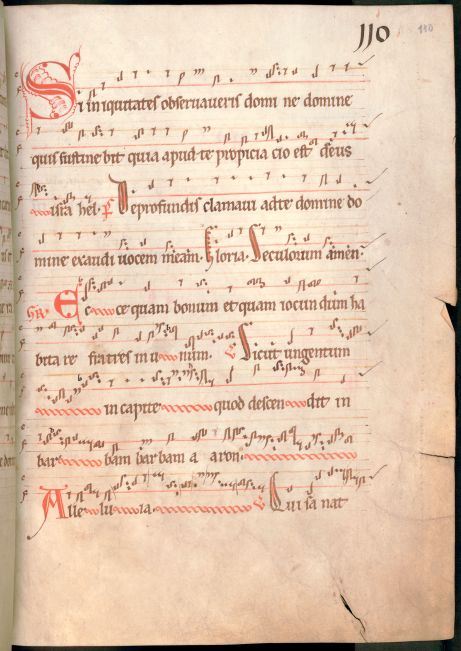 110 110
Si iniquitates observaveris domi ne domine
quis sustine bit quia apud te propicia cio est deus
isra hel. De profundis clamavi ad te domine do
mine exaudi vocem meam. Gloria. Seculorum amen.
Ecce quam bonum et quam iocun dum ha
bita re fratres in u num. Sicut ungentum
in capite quod descen dit in
bar bam bar bam a aron.
Alle lu ia. Qui sa nat